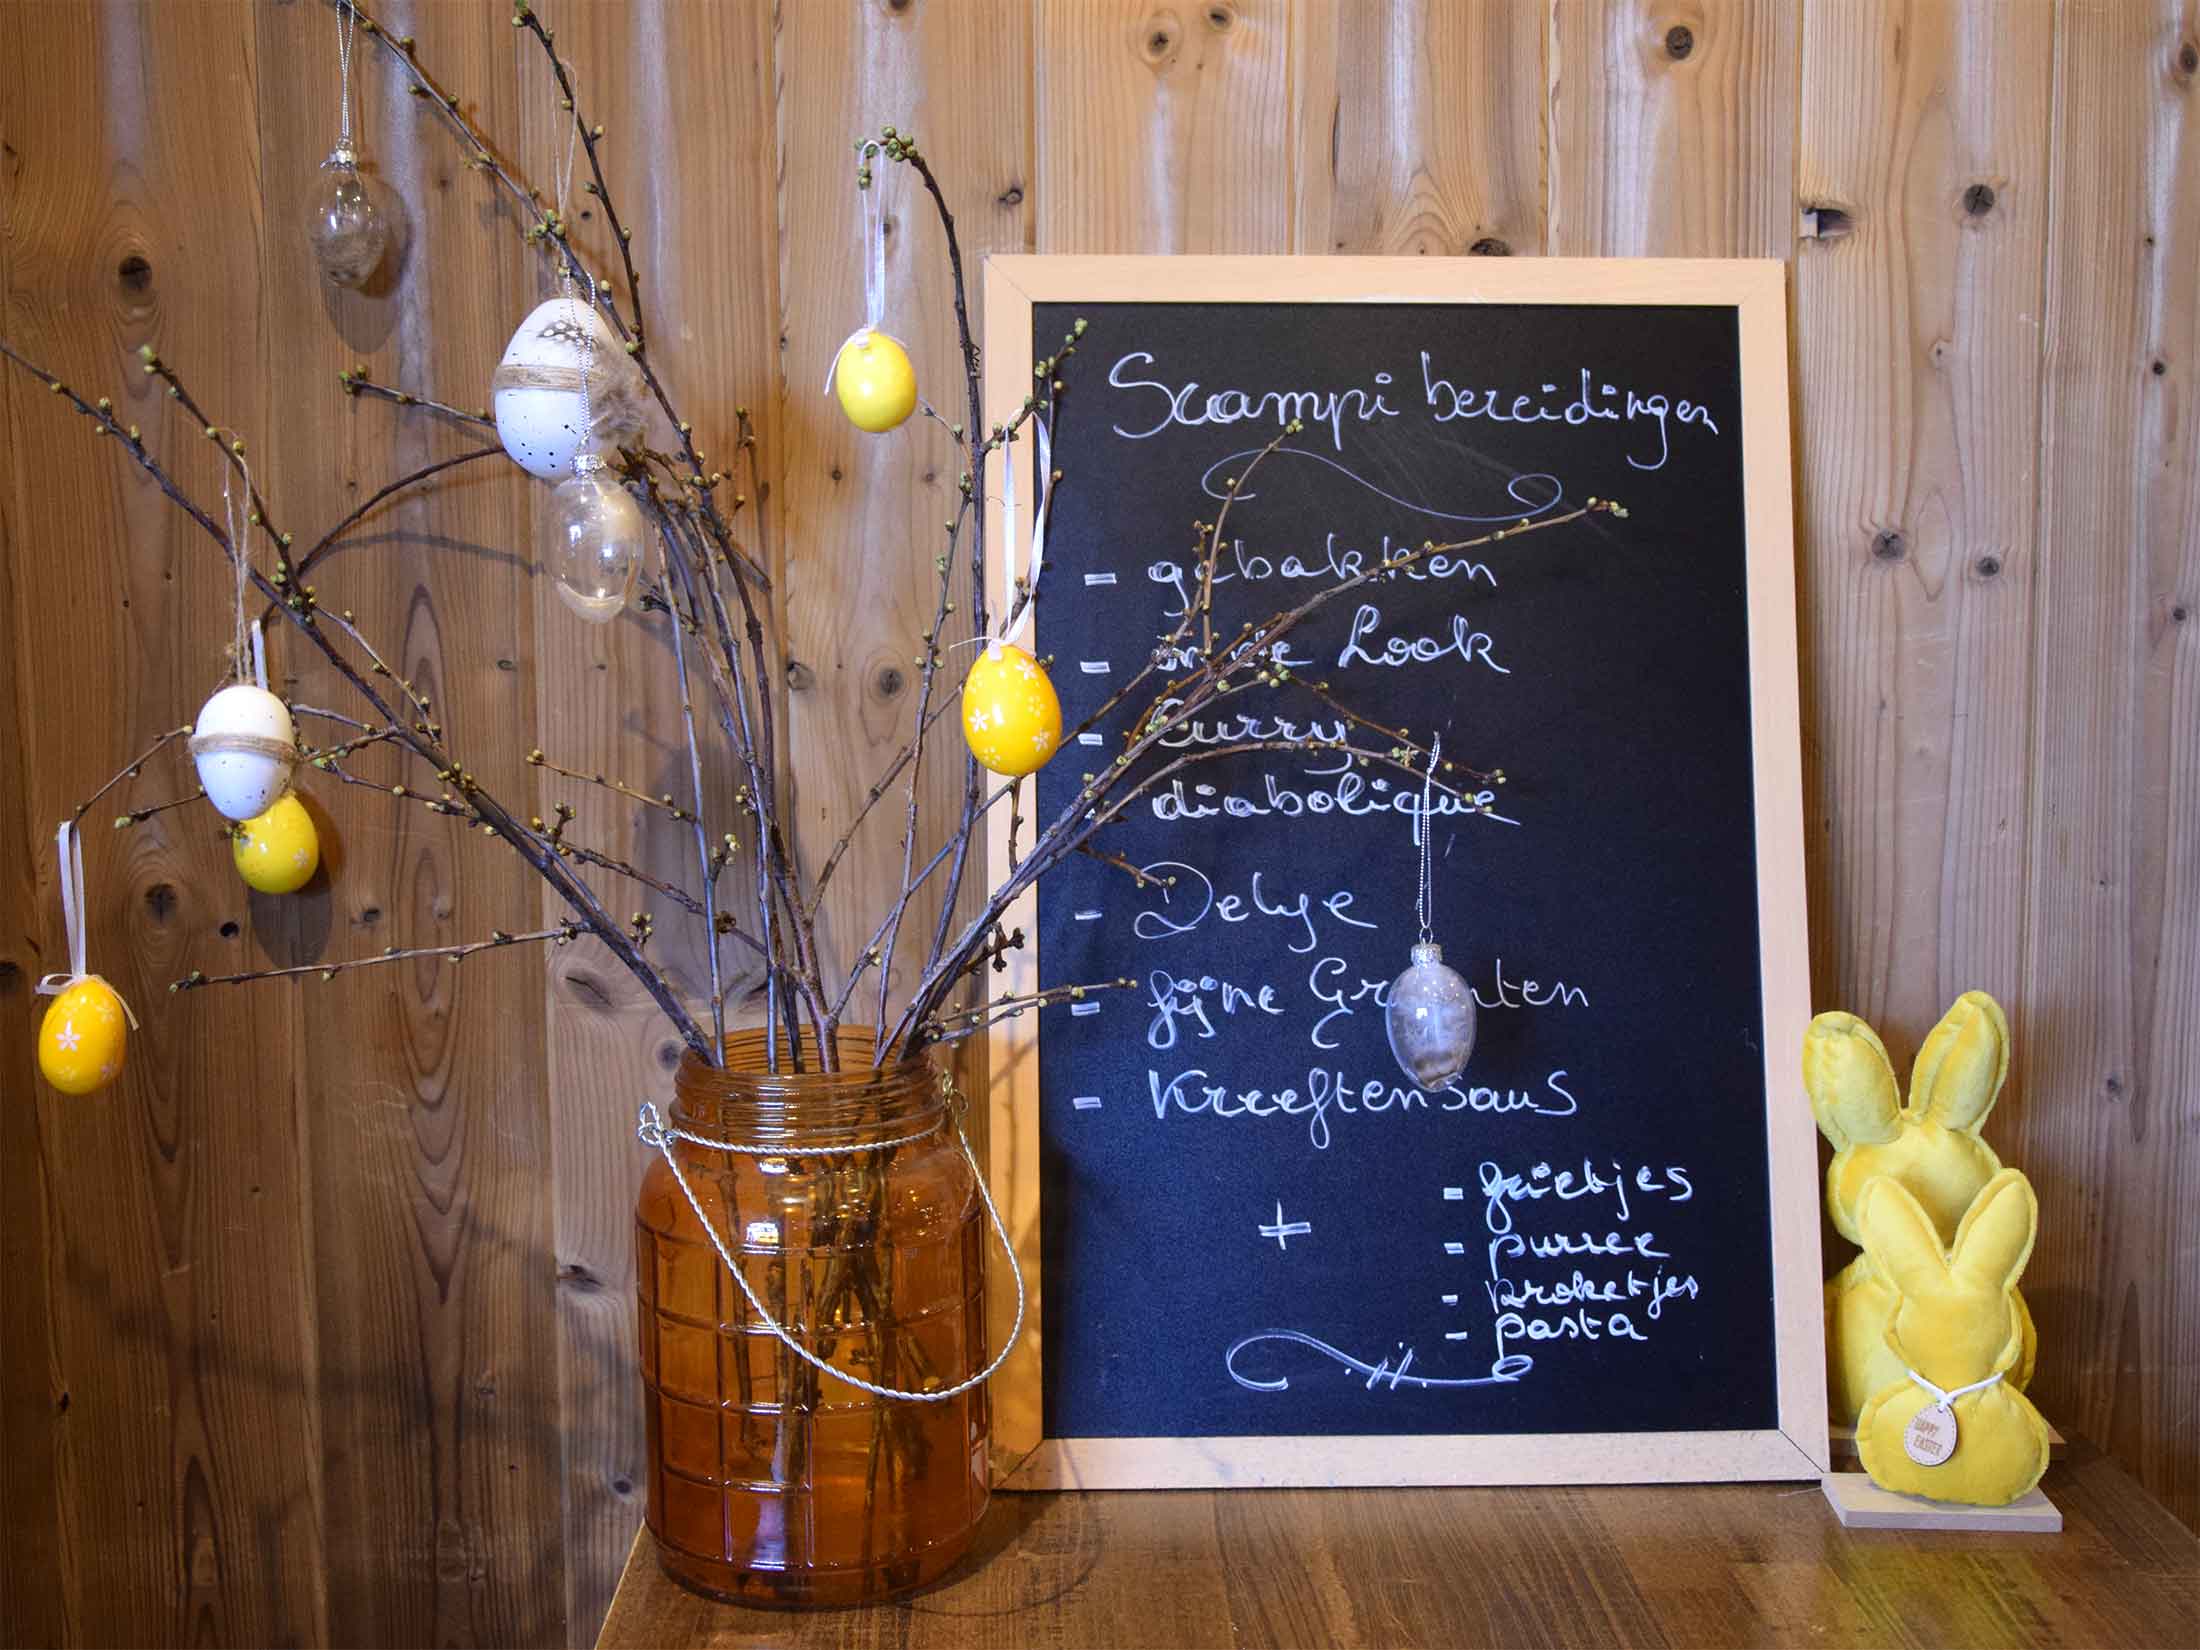 Scampi bereidingen
- gebakken
- in de Look
- Curry
- diabolique
- Delyse
- fijne Groenten
- Kreeftensaus
+
- frietjes
- puree
- kroketjes
- pasta
HAPPY
EASTER